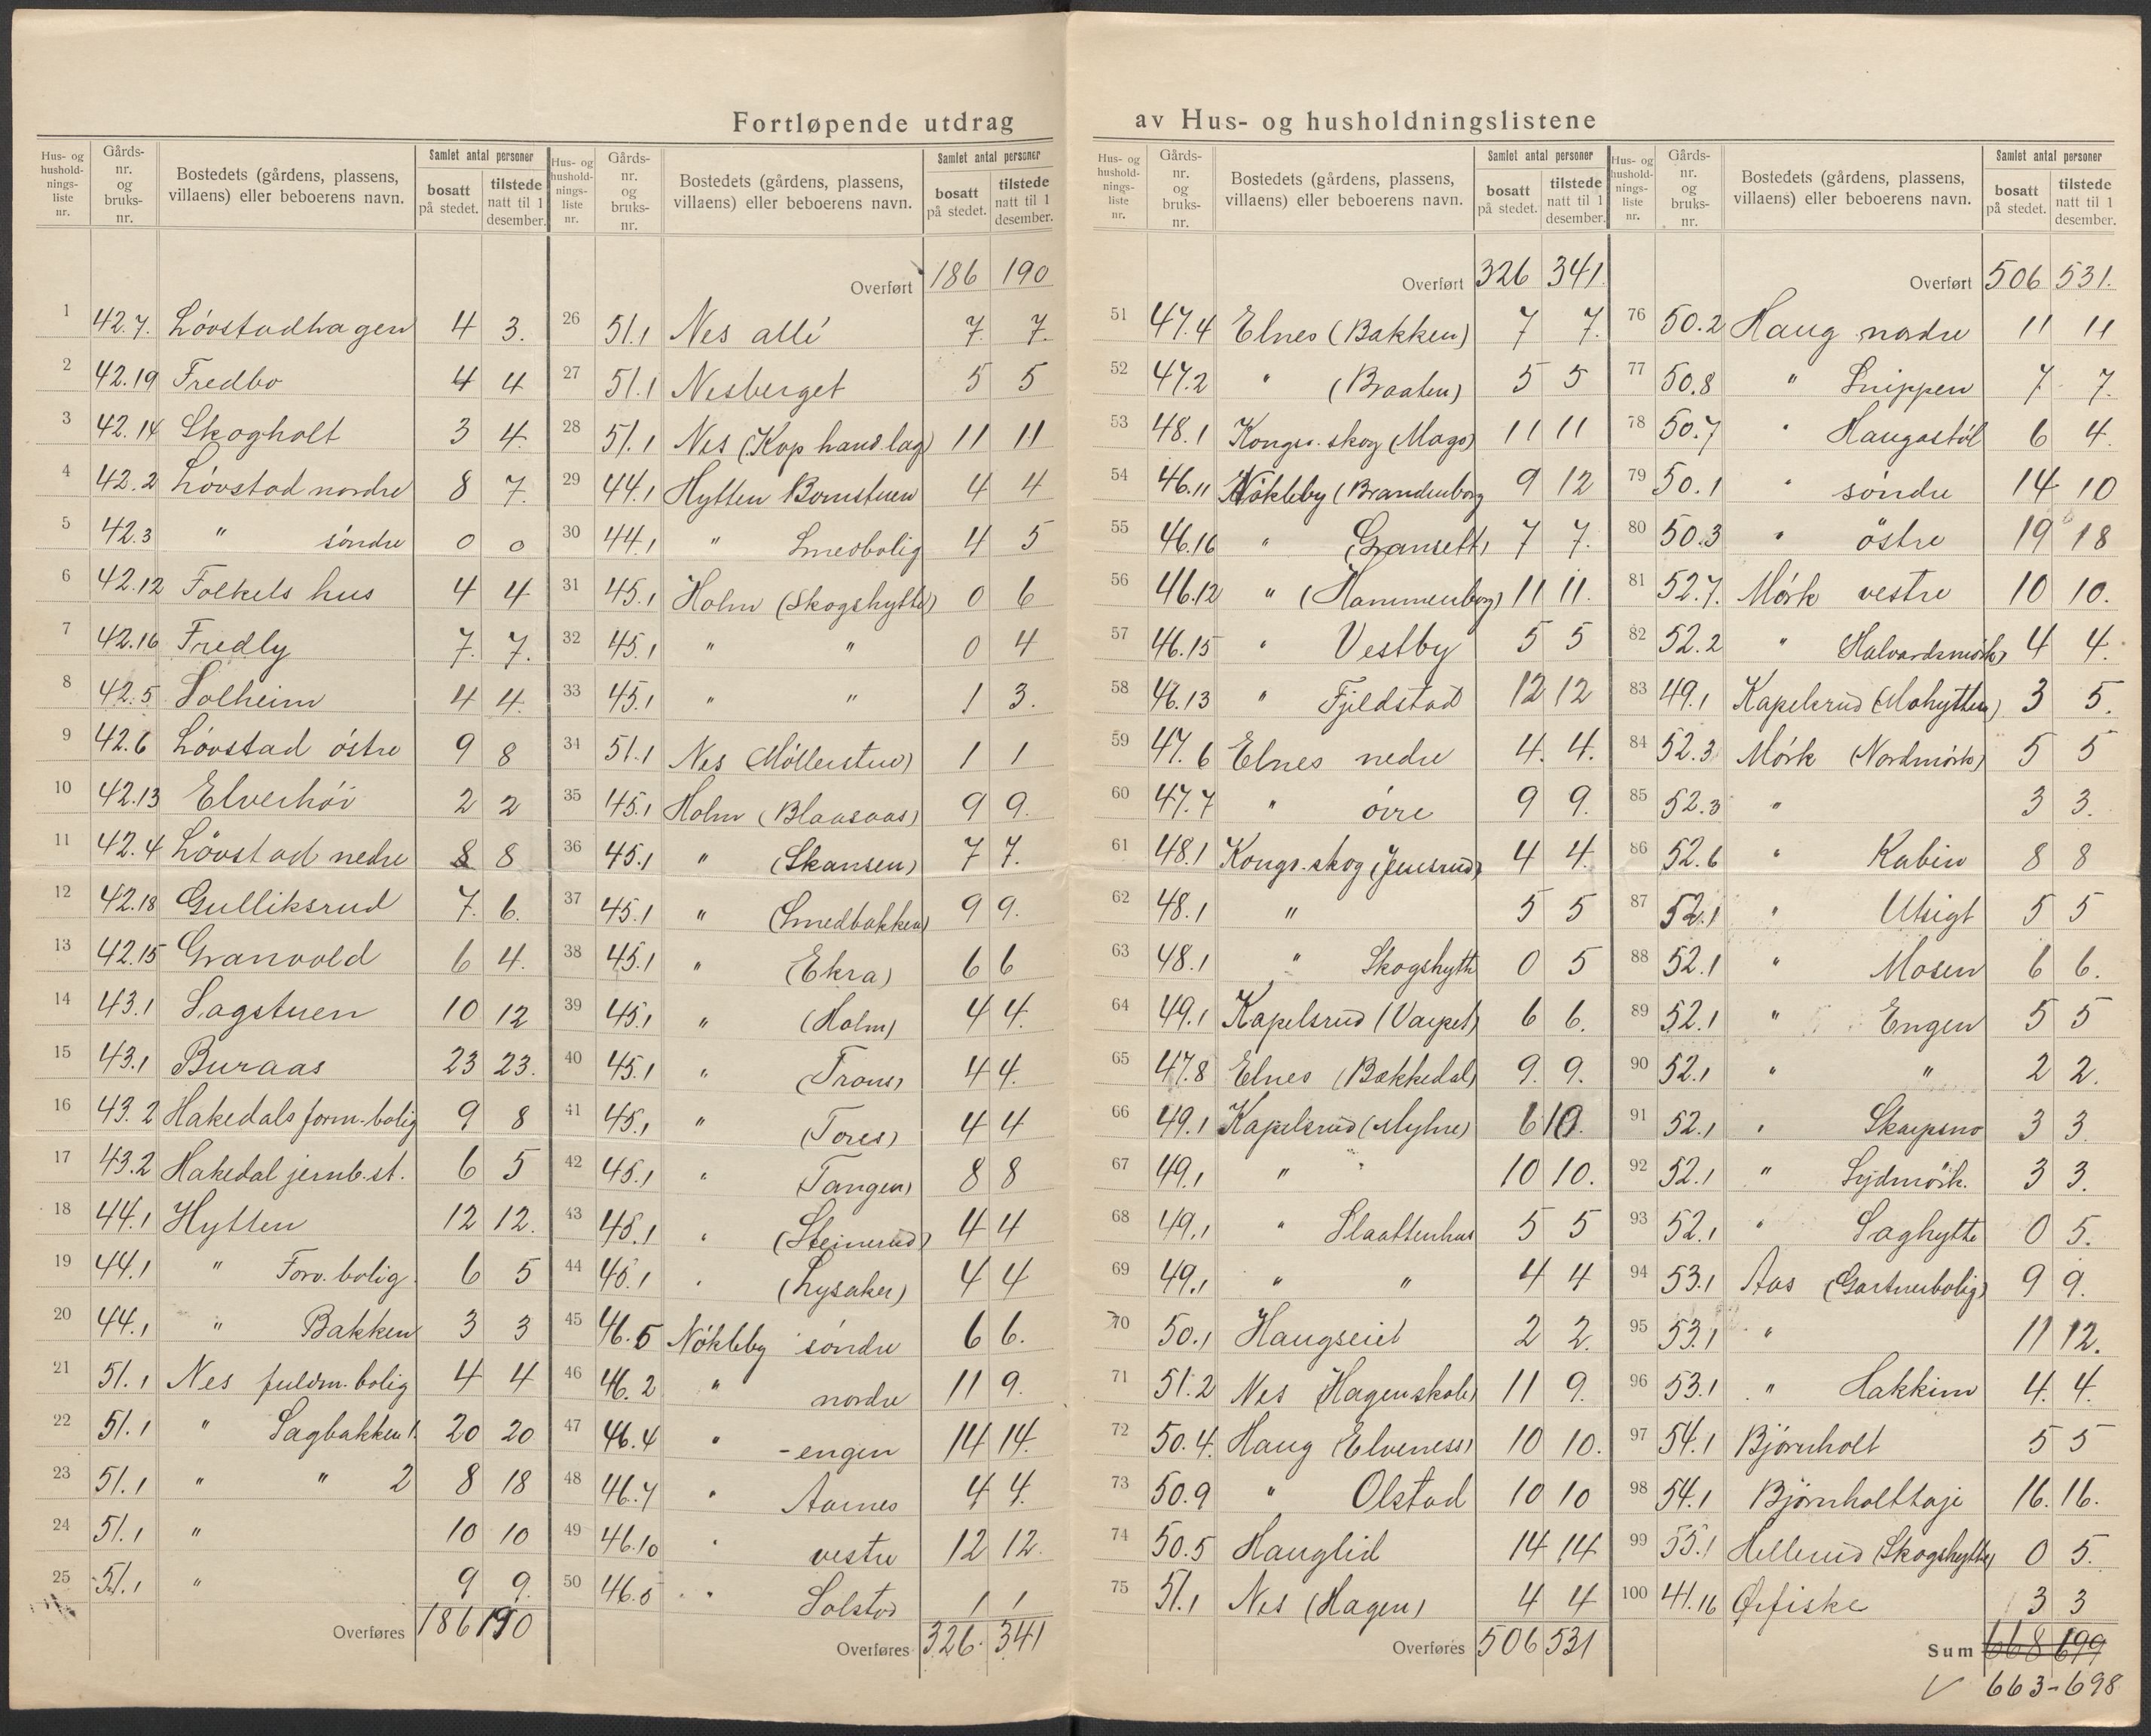 Fortløpende utdrag av Hus- og husholdningslistene
Hus- og hushold- nings- liste nr. | Gårds- nr. og bruks- nr. | Bostedets (gårdens, plassens, villaens) eller beboerens navn. | Samlet antal personer | bosatt på stedet. | tilstede natt til 1 desember.
1 42.7. Lövstadhagen 4 3.
2 42.19 Fredbo 4 4
3 42.14 Skogholt 3 4.
4 42.2 Lövstad nordre 8 7.
5 42.3 " söndre 0 0
6 42.12 Folkets hus 4 4
7 42.16 Fredly 7. 7.
8 42.5 Solheim 4 4.
9 42.6 Lövstad östre 9 8
10 42.13 Elverhöi 2 2
11 42.4 Lövstad nedre 8 8
12 42.18 Gulliksrud 7. 6.
13 42.15 Granvold 6 4.
14 43.1 Sagstuen 10 12
15 43.1 Buraas 23 23.
16 43.2 Hakedals form. bolig 9 8
17 43.2 Hakedal jernb. st. 6 5
18 44.1 Hytten 12 12.
19 44.1 " Forv. bolig 6 5
20 44.1 " Bakken 3 3
21 51.1 Nes fuldm. bolig 4 4
22 51.1 " Sagbakken 1. 20 20
23 51.1 " " 2 8 18
24 51.1 " 10 10
25 51.1 " 9 9.
Overføres 186 190
Hus- og hushold- nings- liste nr. | Gårds- nr. og bruks- nr. | Bostedets (gårdens, plassens, villaens) eller beboerens navn. | Samlet antal personer | bosatt på stedet. | tilstede natt til 1 desember.
Overført 186 190
26 51.1 Nes allé 7. 7.
27 51.1 Nesberget 5 5
28 51.1 Nes (Kop hand. lag) 11 11
29 44.1 Hytten Bomstuen 4 4
30 44.1 " Smedbolig 4 5
31 45.1 Holm (Skogshytte) 0 6
32 45.1 " " 0 4
33 45.1 " " 1 3.
34 51.1 Nes (Möllerstua) 1 1
35 45.1 Holm (Blaasaas) 9 9.
36 45.1 " (Skansen) 7 7.
37 45.1 " (Smedbakken) 9 9.
38 45.1 " (Ekra) 6 6
39 45.1 " (Holm) 4 4.
40 45.1 " (Trons) 4 4.
41 45.1 " (Tores) 4 4
42 45.1 " (Tangen) 8 8
43 45.1 " (Steinerud) 4 4
44 45.1 " (Lysaker) 4 4
45 46.5 Nökleby söndre 6 6.
46 46.2 " nordre 11 9.
47 46.4 " -engen 14 14.
48 46.7 " Aarnes 4 4.
49 46.10 " vestre 12 12.
50 46.5 " Solstad 1 1
Overføres 326. 341
Hus- og hushold- nings- liste nr. | Gårds- nr. og bruks- nr. | Bostedets (gårdens, plassens, villaens) eller beboerens navn. | Samlet antal personer | bosatt på stedet. | tilstede natt til 1 desember.
Overført 326 341.
51 47.4 Elnes (Bakken) 7 7.
52 47.2 " (Braaten) 5 5
53 48.1 Kongs. skog (Mago) 11 11
54 46.11 Nökleby (Brandenborg 9 12
55 46.16 " (Gransett) 7 7.
56 46.12 " (Hammenborg) 11 11.
57 46.15 " Vestby 5 5
58 46.13 " Fjeldstad 12 12
59 47.6 Elnes nedre 4. 4.
60 47.7 " övre 9 9.
61 48.1 Kongs. skog (Jensrud) 4 4.
62 48.1 " 5 5
63 48.1 " Skogshytte 0 5
64 49.1 Kapelsrud (Varpet) 6 6.
65 47.8 Elnes (Bakkedal) 9. 9.
66 49.1 Kapelsrud (Myhre) 6 10.
67 49.1 " " 10 10.
68 49.1 " Slaattenhus 5 5
69 49.1 " " 4 4
70 50.1 Haugseiet 2 2.
71 51.2 Nes (Hagen skole) 11 9.
72 50.4. Haug (Elveness) 10 10.
73 50.9 " Olstad 10 10
74 50.5 Hauglid 14 14
75 51.1 Nes (Hagen) 4 4
Overføres 506 531
Hus- og hushold- nings- liste nr. | Gårds- nr. og bruks- nr. | Bostedets (gårdens, plassens, villaens) eller beboerens navn. | Samlet antal personer | bosatt på stedet. | tilstede natt til 1 desember.
Overført 506 531.
76 50.2 Haug nordre 11 11
77 50.8 " Snippen 7 7.
78 50.7 " Haugastöl 6 4.
79 50.1 " söndre 14 10
80 50.3 " östre 19 18
81 52.7. Mörk vestre 10 10.
82 52.2 " Halvardsmörk) 4 4.
83 49.1 Kapelsrud (Mohytten) 3 5.
84 52.3 Mörk (Nordmörk) 5 5
85 52.3 " 3 3.
86 52.6 " Rabin 8 8
87 52.1 " Utsigt 5 5
88 52.1 " Mosen 6 6.
89 52.1 " Engen 5 5
90 52.1 " " 2 2.
91 52.1 " Skarpsno 3 3.
92 52.1 " Sydmörk. 3 3.
93 52.1 " Saghytte 0 5.
94 53.1 Aas (Gartnerbolig) 9 9.
95 53.1 " 11 12.
96 53.1 " Hakkim 4. 4.
97 54.1 Bjørnholt 5 5
98 54.1 Bjørnholttaje 16. 16.
99 55.1 Hellerud Skogshytte 0 5.
100 41.16 Ørfiske 3 3
Sum 668 699
✓ 663-698